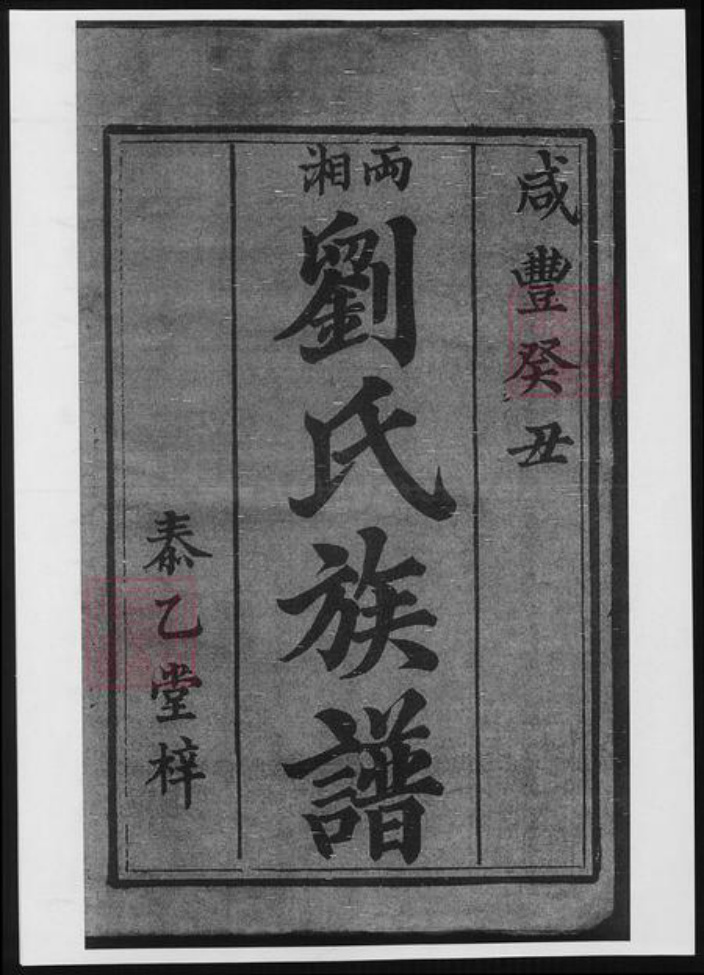 咸豐癸丑
兩湘
劉氏族譜
泰乙堂梓